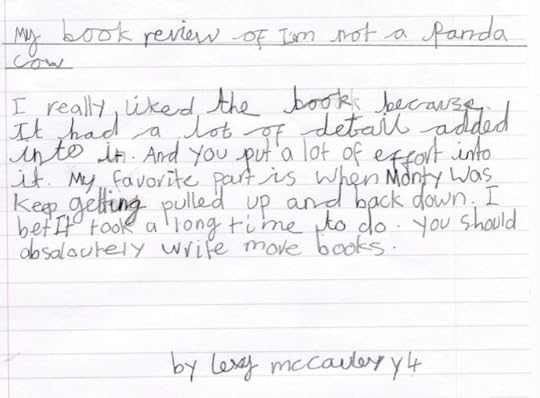 My book review of Im not a Panda
cow
I really liked the book because.
It had a lot of detail added
into it. And you put a lot of effort into
it. My favorite part is when Monty was
keep getting pulled up and back down. I
bet It took a long time to do. You should
absaloutely write more books.
by lexy mccauley y4